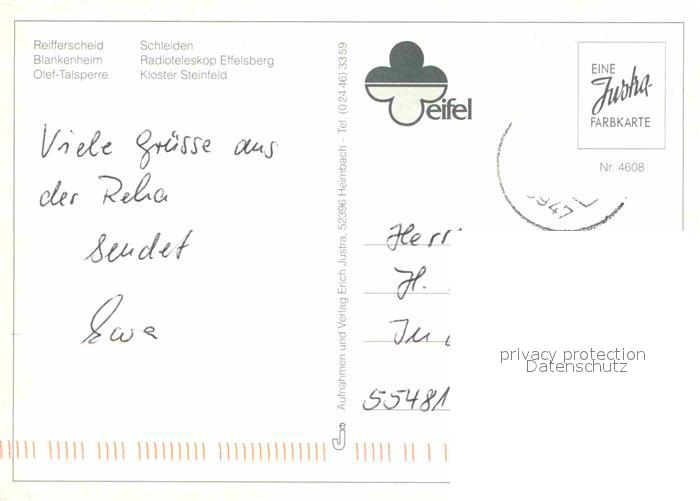 Reifferscheid
Blankenheim
Olef-Talsperre
Schleiden
Radioteleskop Effelsberg
Kloster Steinfeld
Viele Grüsse aus
der Reha
sendet
Ewa
Aufnahmen und Verlag Erich Justra, 52396 Heimbach - Tel. (0 24 46) 33 59
eifel
EINE
Justra-
FARBKARTE
Nr. 4608
Herr
H.
In
55481
privacy protection
Datenschutz